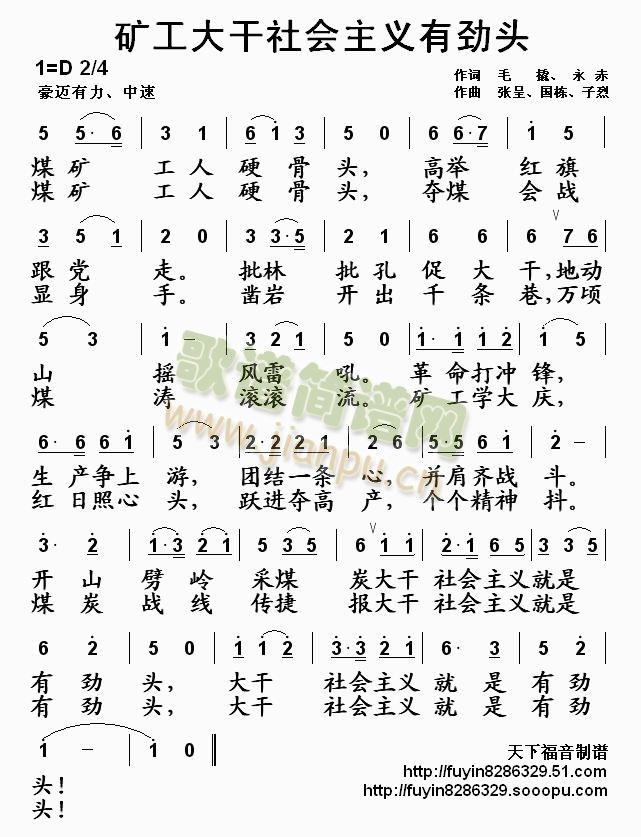 矿工大干社会主义有劲头
1=D 2/4
作词 毛 撬、永赤
豪迈有力、中速
作曲 张呈、国栋、子烈
5 5· 6 | 3 1 | 6 1 3 | 5 0 | 6 6· 7 | 1 5
煤矿 工人硬骨头，高举 红旗
煤矿 工人硬骨头，夺煤 会战
3 5 1 | 2 0 | 3 3· 5 | 2 1 | 6 6 | 6 7 6
跟党 走。批林 批孔促大干，地动
显身 手。凿岩 开出千条巷，万顷
5 3 | 1 – | 3 2 1 | 5 0 | 1· 1 1 2 | 1 5
山 摇 风雷 吼。革命打冲锋，
煤 涛 滚滚 流。矿工学大庆，
歌谱简谱网
www.jianpu.cn
6· 6 6 1 | 5 3 | 2· 2 2 1 | 2 6 | 5· 5 6 1 | 2 –
生产争上游，团结一条心，并肩齐战斗。
红日照心头，跃进夺高产，个个精神抖。
3· 2 | 1· 3 2 1 | 5 3 5 | 6· 1 | 2· 1 6 5 | 3 5 5
开山劈岭采煤 炭大干社会主义就是
煤炭战线传捷 报大干社会主义就是
6 2 | 5 0 | 1 1 2 | 3· 3 2 1 | 6· 3 | 5 2
有劲头，大干 社会主义就是有劲
有劲头，大干 社会主义就是有劲
1 – | 1 0
天下福音制谱
头！
http://fuyin8286329.51.com
头！
http://fuyin8286329.sooopu.com